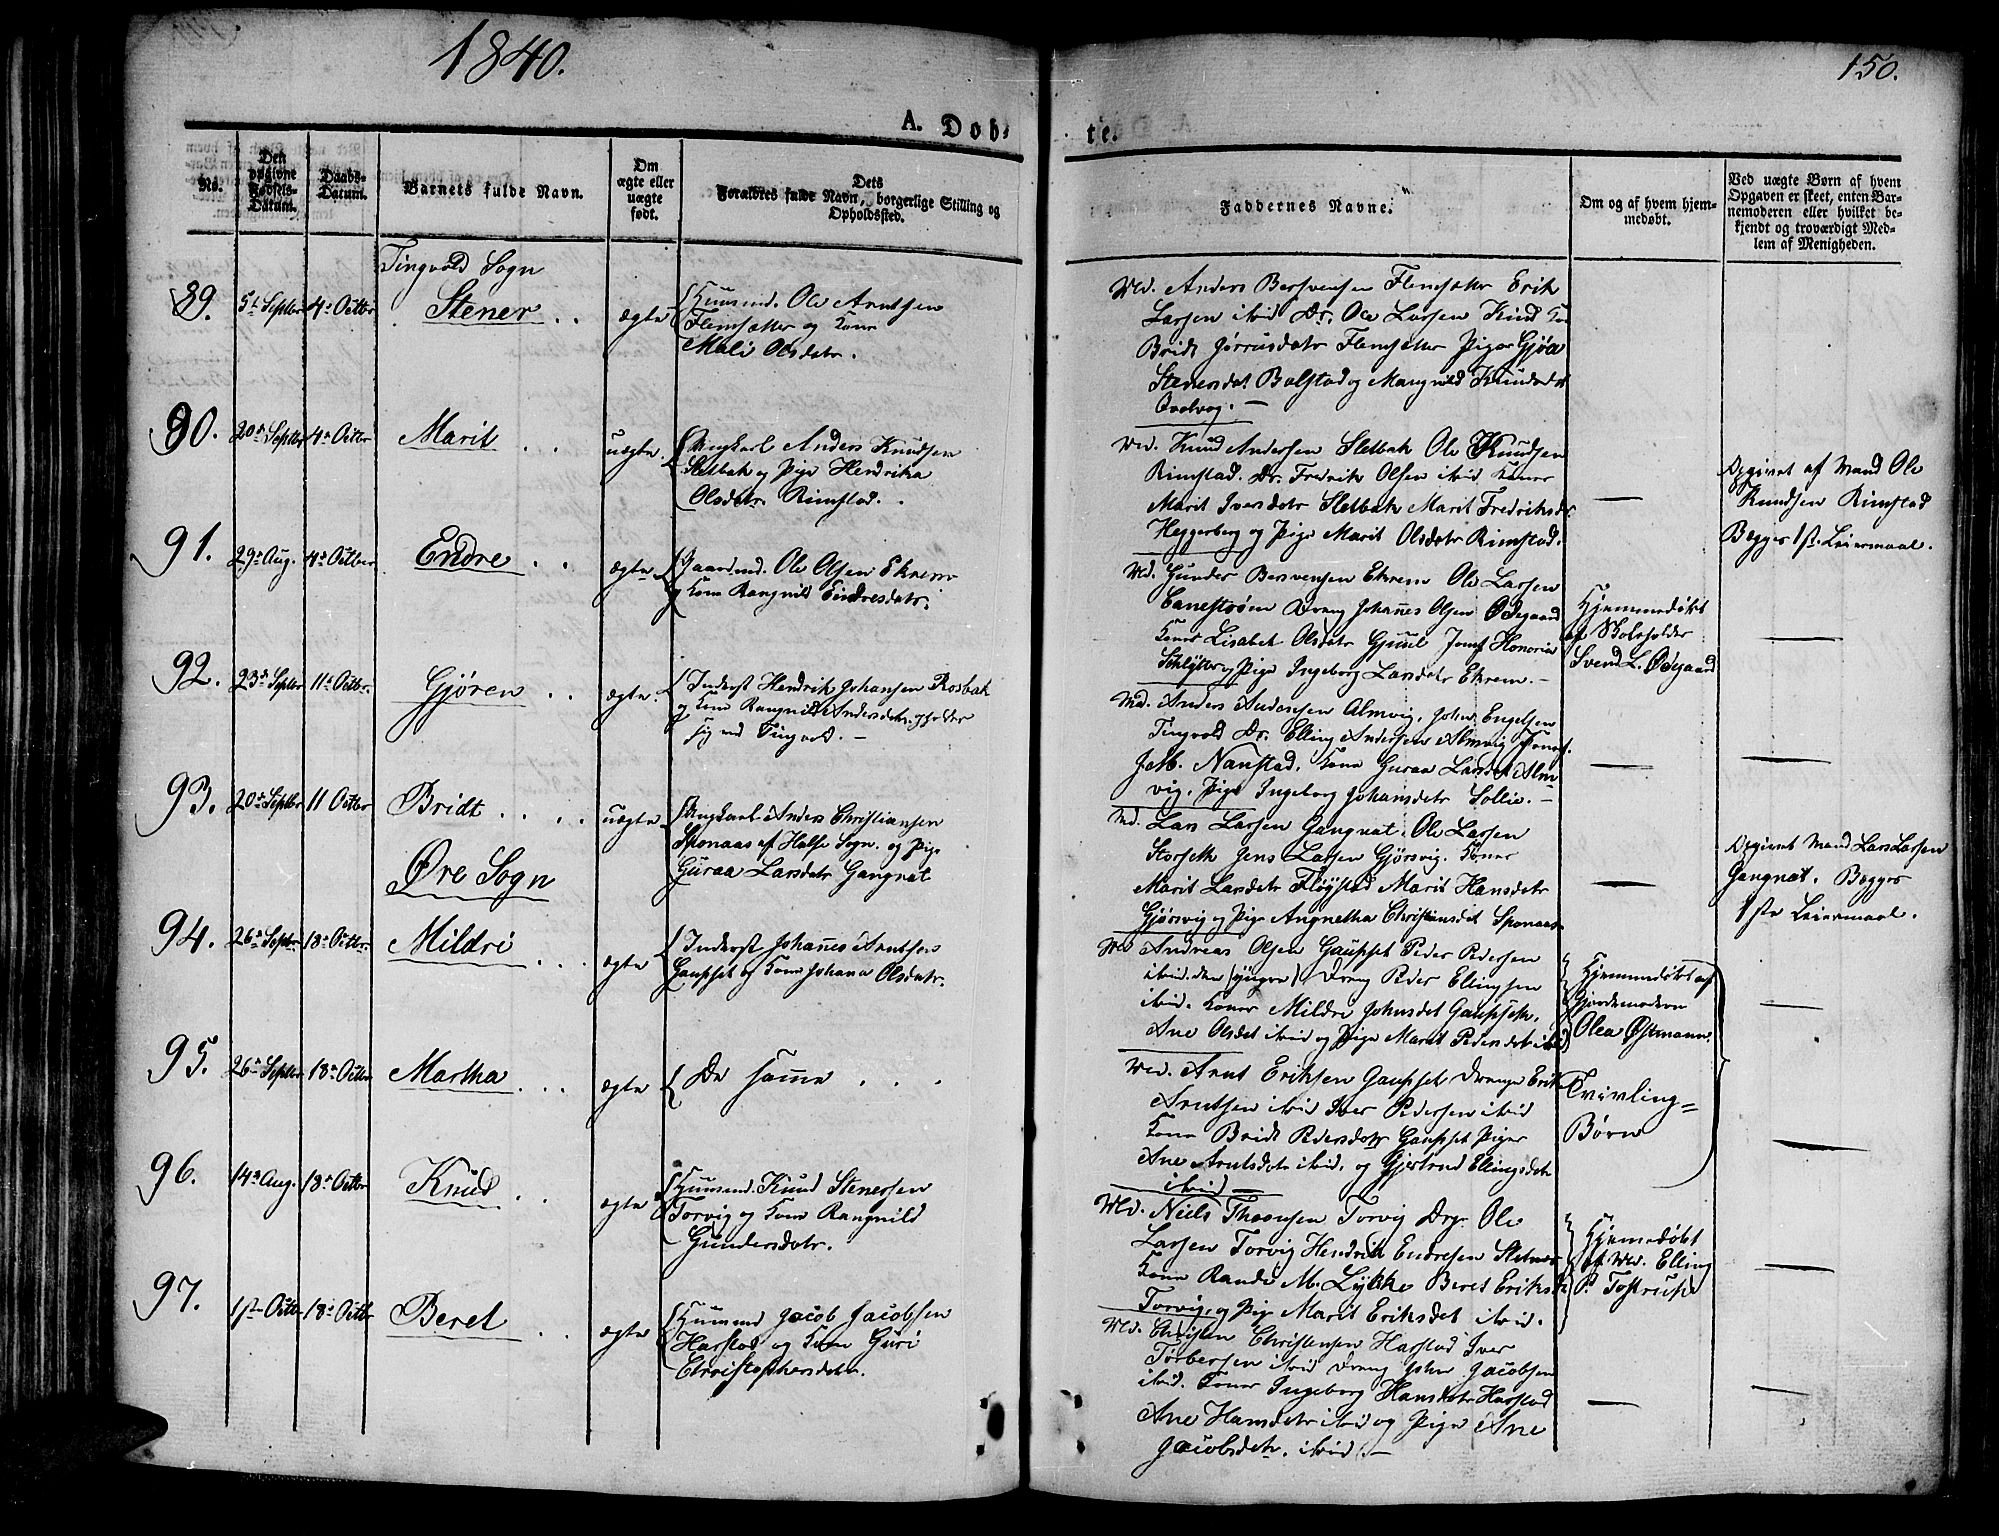 1840.
150.
A. Døb-
te.
No.
Den
opgivne
Fødsels-
Datum.
Daabs-
Datum.
Barnets fulde Navn.
Om
ægte eller
uægte
født.
Dets
Forældres fulde Navn, borgerlige Stilling og
Opholdssted.
Faddernes Navne.
Om og af hvem hjem-
medøbt.
Ved uægte Børn af hvem
Opgaven er skeet, enten Bar-
nemoderen eller hvilket be-
kjendt og troværdigt Med-
lem af Menigheden.
Tingvold Sogn
89.
5te Septbr
4de Octbr
Stener
ægte
Huusmd. Ole Arntsen
Flemsætter og Kone
Mali Olsdatr.
Md. Anders Bersvensen Flemsætter Erik
Larsen ibid Dr. Ole Larsen Kind
Bridt Jørrusdatr Flemsætter Piger Gjøa
Stenersdat Bolstad og Mangnild Knudsdat
90.
20de Septbr
4de Octbr
Marit
uægte
Ungkarl Anders Knudsen
Sletbak og Pige Hendrika
Olsdatr. Rimstad.
Md. Knud Andersen Sletbak Ole Knudsen
Rimstad. Dr. Fredrik Olsen ibid Koner
Marit Iversdatr Sletbak Marit Fredriksdr
Heggerberg og Pige Marit Olsdatr Rimstad.
Opgivet af Mand Ole
Knudsen Rimstad
Begges 1ste Leiermaal.
91.
29de Aug.
4de Octber
Endre
ægte
Gaardmd. Ole Olsen Ekrem
og Kone Rangnild Eindresdatr.
Md. Gunder Bersvensen Ekrem Ole Larsen
Canestrøm Dreng Johannes Olsen Ødegaard
Koner Lisabet Olsdatr Gjuul Jomf Honoria
Schlytter og Pige Ingeborg Larsdatr Ekrem.
Hjemmedøbt
af Skoleholder
Svend L. Ødegaard
92.
23de Septbr
11te Octbr.
Gjøren
ægte
Inderst Hendrik Johansen Rosbak
og Kone Rangnild Andersdatr. opholder
sig ved Tingvold.
Md. Anders Andersen Almvig, John Engelsen
Tingvold Dr. Elling Andersen Almvig
J. M. Nanstad. Kone Guraa Larsdet Alm-
vig. Pige Ingeborg Johansdatr Sollie.
93.
20de Septbr
11 Octbr
Bridt
uægte
Ungkarl Anders Christiansen
Sponaas af Halse Sogn. og Pige
Guraa Larsdatr Gangnat
Md. Lars Larsen Gangnat. Ole Larsen
Storseth Jens Larsen Gjørsvig. Koner
Marit Larsdatr Fløystad Marit Hansdatr
Gjørsvig og Pige Angnetha Christiansdet Sponaas
Opgivet Mand Lars Larsen
Gangnat. Begges
1ste Leiermaal.
Øre Sogn
94.
26de Septbr
18de Octbr.
Mildri
ægte
Inderst Johannes Arntsen
Gaupset og Kone Johana Olsdatr.
Md Andreas Olsen Gaupset Peder Pedersen
ibid. den (yngre) Dreng Peder Ellingsen
ibid. Koner Mildri Johnsdet Gaupseth.
Ane Olsdet ibid og Pige Marit Pedersdet ibid
Hjemmedøbt af
Gjordemoderen
Olea Østmann.
95.
26de Septbr
18de Octbr
Martha
ægte
De samme
Md. Arnt Eriksen Gaupset Drenge Erik
Arntsen ibid Iver Pedersen ibid
Kone Bridt Pedersdatr Gaupset Piger
Ane Arntsdatr ibid. og Gjertrud Ellingsdatr
ibid
Tvivling-
Børn
96.
14de Aug.
18de Octbr
Knud
ægte
Huusmd. Knud Stenersen
Torvig og Kone Rangnild
Gundersdatr.
Md. Niels Thoersen Torvig Drg. Ole
Larsen Torvig Hendrik Endresen
Kone Rande M. Lykke Beret Eriksdr
Torvig, og Pige Marit Eriksdet ibid.
Hjemedøbt
af Md. Elling
P. Tostrup
97.
1ste Octbr.
18de Octbr
Beret
ægte
Huusmd Jacob Jacobsen
Harstad og Kone Guri
Christophersdatr.
Md. Christen Christensen Harstad Iver
Torbersen ibid Dreng John Jacobsen
ibid. Koner Ingeborg Hansdatr Harstad
Ane Hansdatr ibid og Pige Ane
Jacobsdatr. ibid.